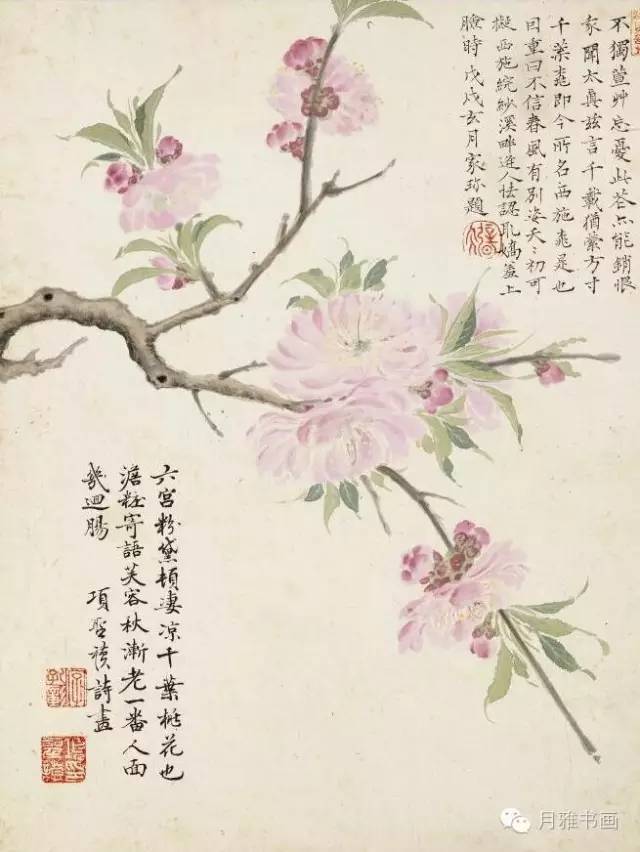 不獨萱艸忘憂此花亦能銷恨
家聞太真茲言千載猶縈方寸
千葉桃即今所名西施桃是也
因重曰不信春風有別姿夭〻初可
擬西施浣紗溪畔逢人怯認嬌羞上
臉時 戊戌玄月家珍題
六宮粉黛頓淒凉千葉桃花也
澹粧寄語芙容秋漸老一番人面
幾迴腸 項聖謨詩畫
月雅书画